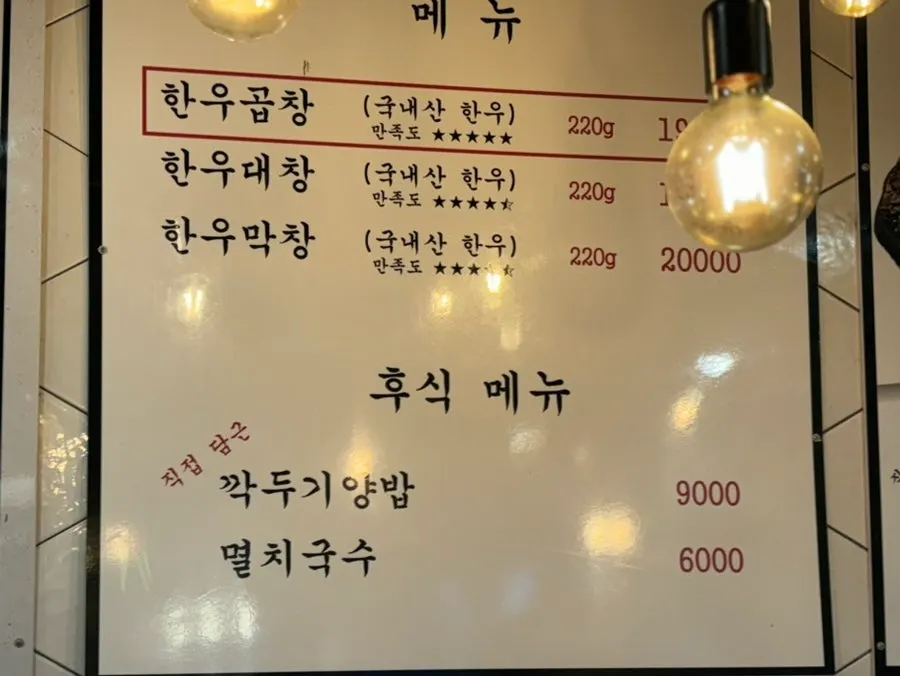 메 뉴
한우곱창 (국내산 한우) 220g
만족도 ★★★★★
한우대창 (국내산 한우) 220g
만족도 ★★★★⯪
한우막창 (국내산 한우) 220g 20000
만족도 ★★★
후식 메뉴
직접 담근
깍두기양밥 9000
멸치국수 6000